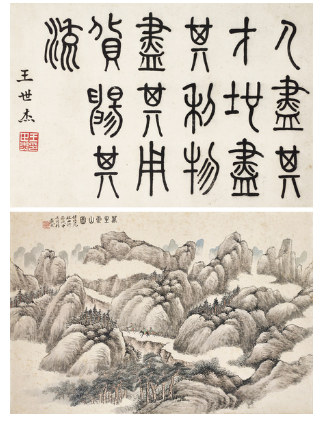 人盡其
才地盡
其利物
盡其用
貨暢其
流
王世杰